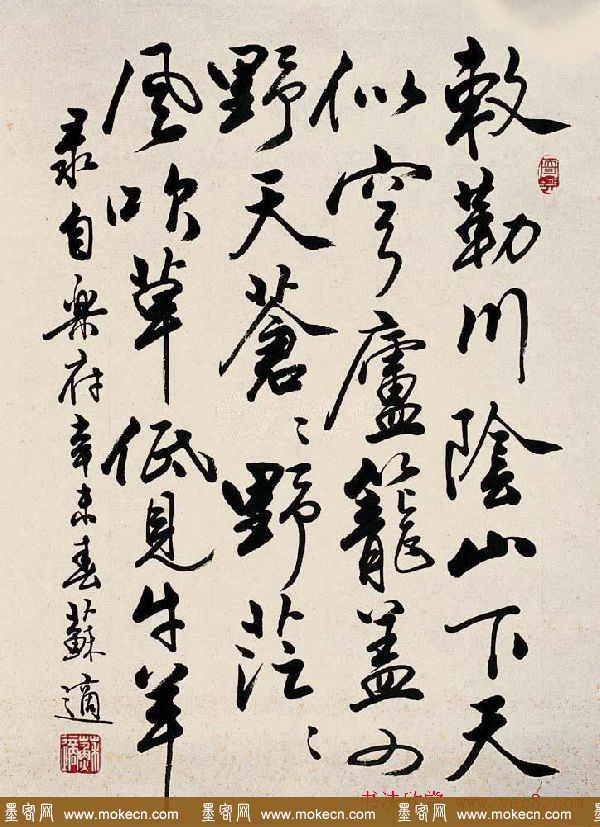 敕勒川陰山下天
似穹廬籠盖四
野天蒼〻野茫〻
風吹草低見牛羊
录自樂府辛未春蘇適
墨客网 www.mokecn.com 墨客网 www.mokecn.com 墨客网 www.mokecn.com